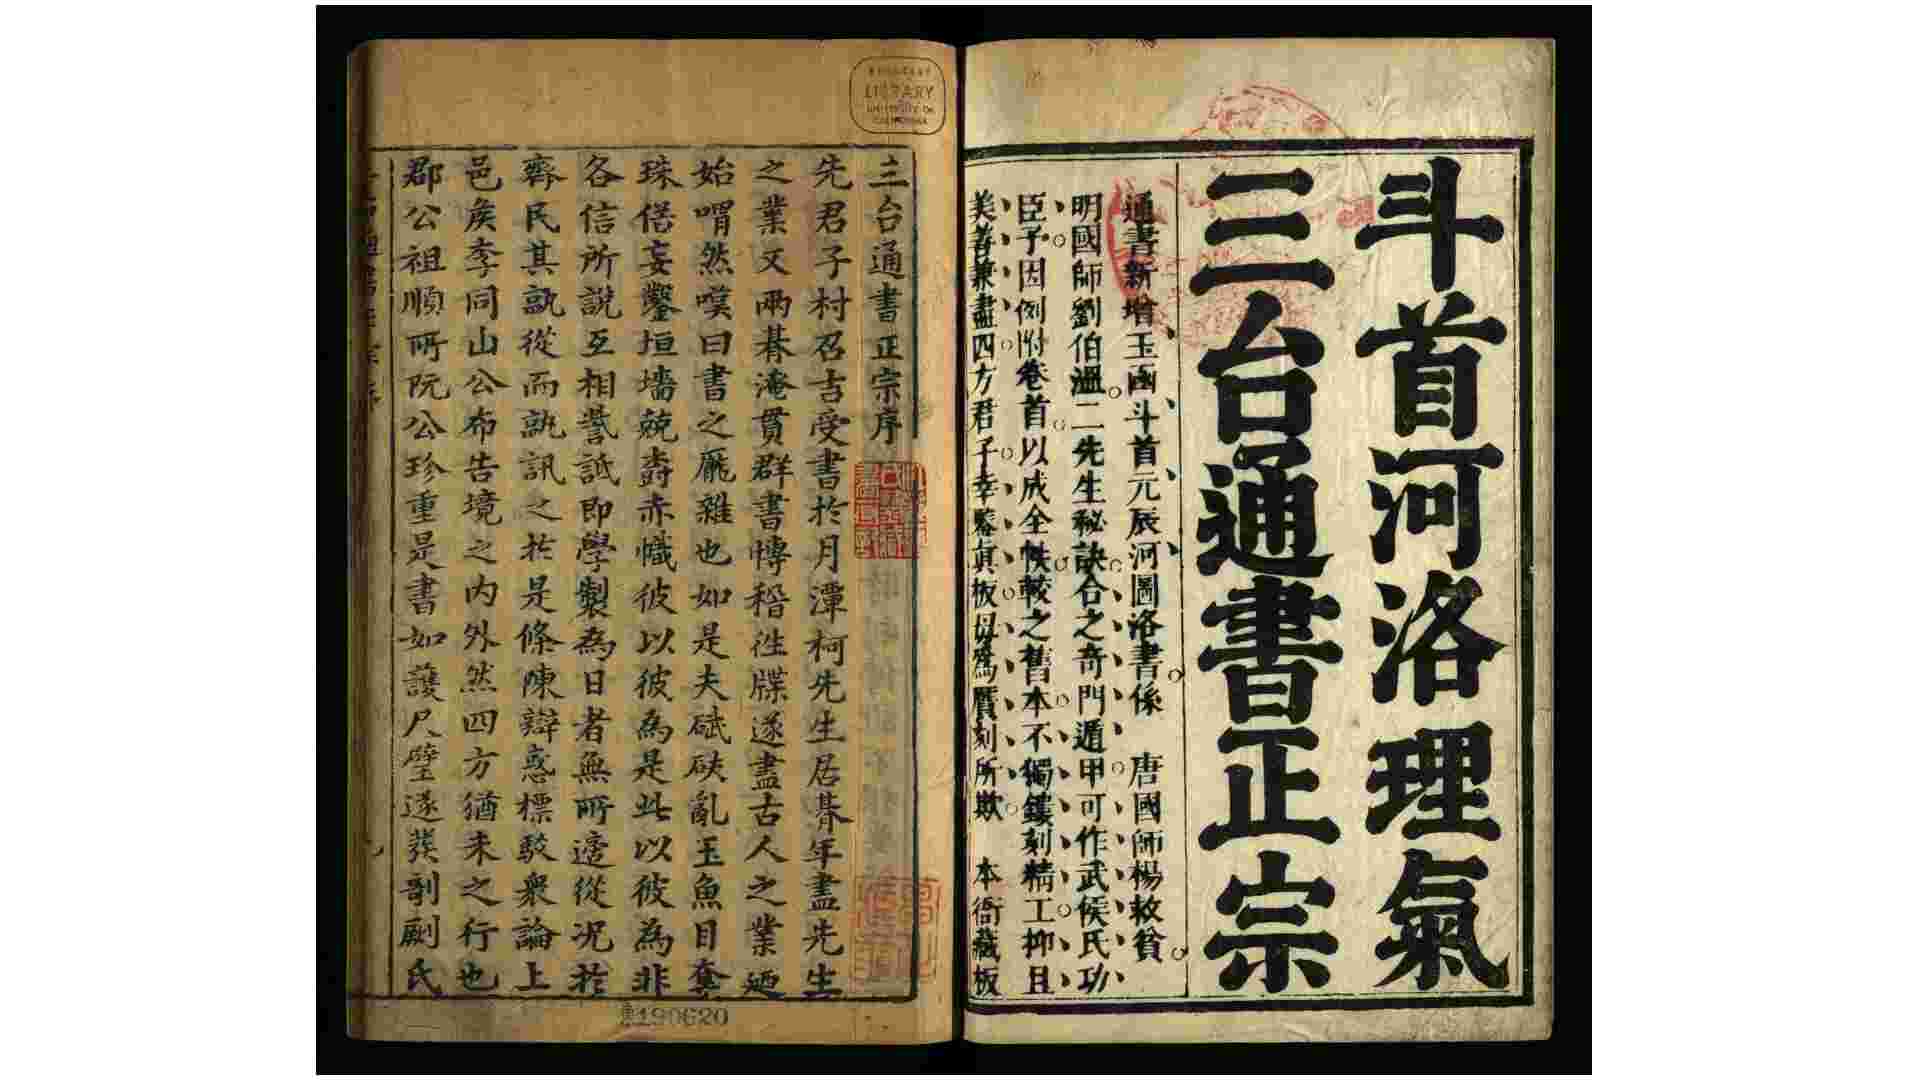 斗首河洛理氣
三台通書正宗
通書新增玉函斗首元辰河圖洛書係 唐國師楊救貧
明國師劉伯溫二先生秘訣合之奇門遁甲可作武侯氏功
臣予因例附卷首以成全帙較之舊本不獨鐫刻精工抑且
美善兼盡四方君子幸鑒真板毋爲贋刻所欺 本衙藏板
三台通書正宗序
先君子村召吉受書於月潭柯先生居朞年盡先生
之業又兩朞淹貫群書博稽徃牒遂盡古人之業廼
始喟然嘆曰書之厖雜也如是夫碔砆亂玉魚目奪
珠俻妄鑿垣墻兢壽赤幟彼以彼為是此以彼為非
各信所說互相訾詆即學製為日者無所適從況於
齊民其孰從而孰訊之於是條陳辯惑標駁衆論上
邑矦李同山公布告境之內外然四方猶未之行也
郡公祖順所阮公珍重是書如護尺璧遂發剞劂氏
LIBRARY
UNIVERSITY OF
CALIFORNIA
190620